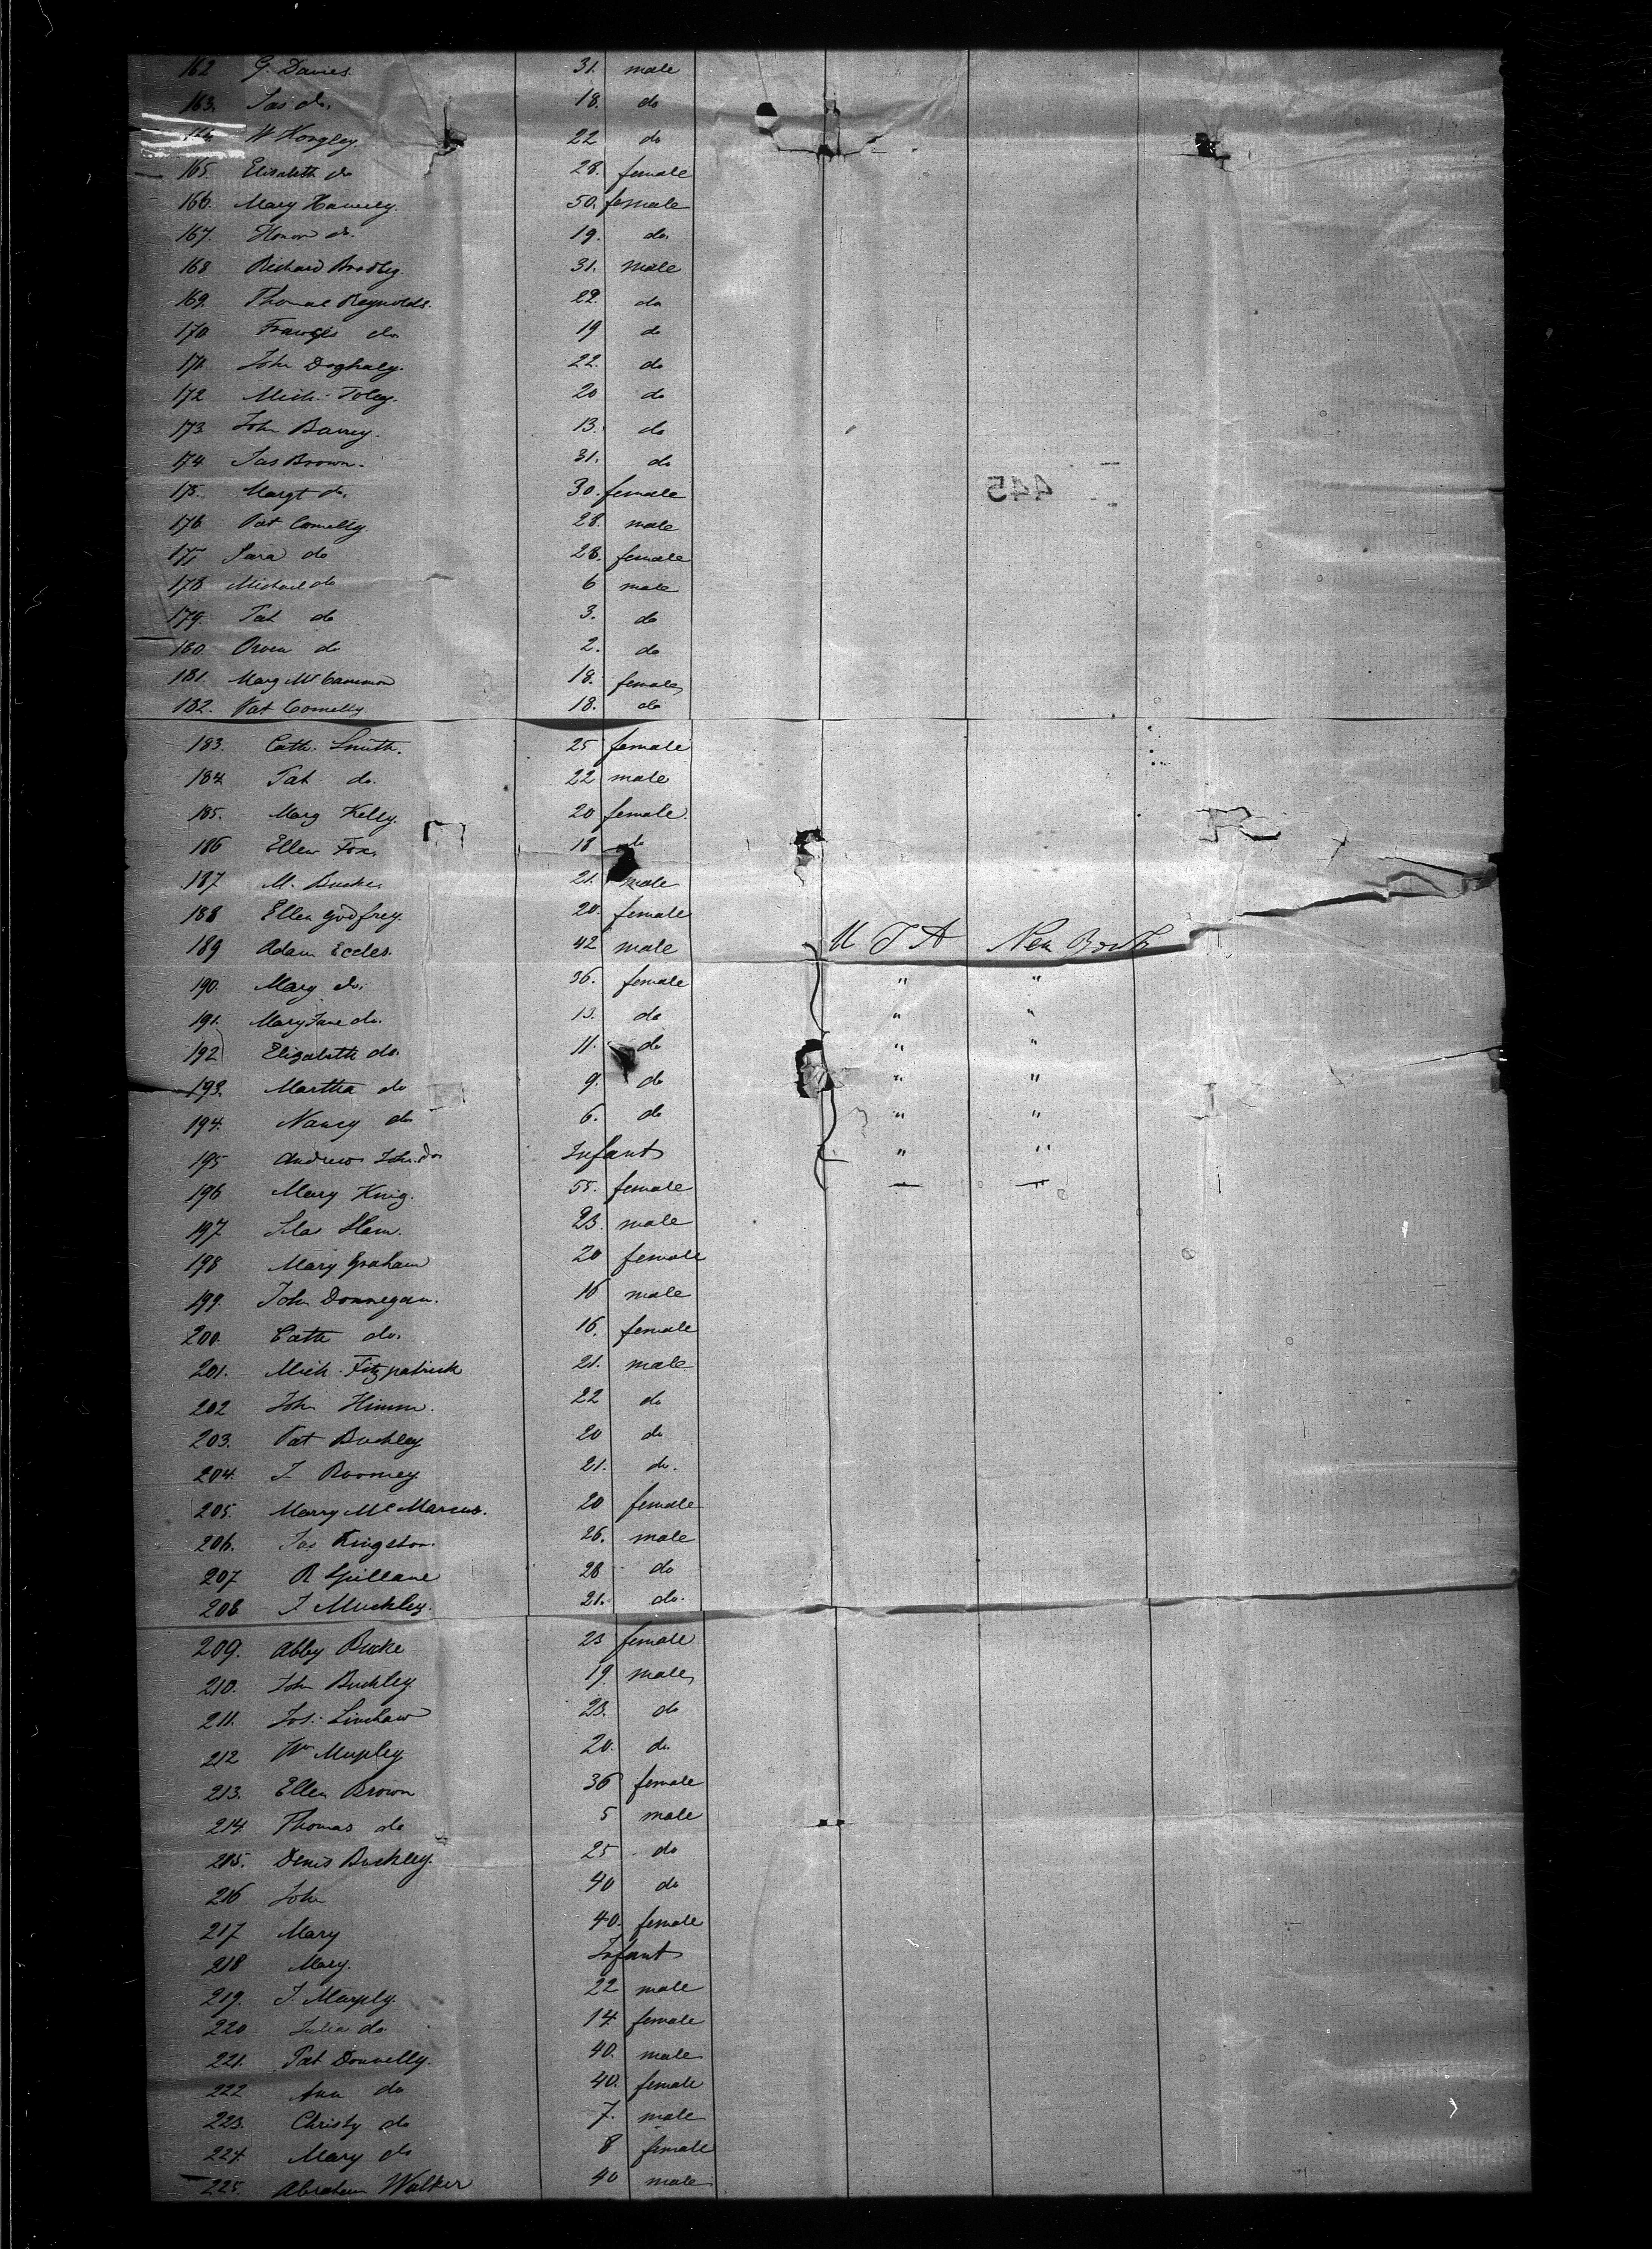 162 G. Davies. 31. male
163. Jas do. 18. do
W Horgley. 22 do
165. Elisabeth do 28. female
166. Mary Hawely. 50. female
167. Honor do. 19. do.
168 Richard Bradley. 31. male
169. Thomas Reynolds. 22. do
170 Francis do 19 do
171. John Doghaly. 22. do
172 Mich. Foley. 20 do
173. John Barrey. 13. do
174. Jas Brown. 31. do
445
175. Margt do. 30. female
176 Pat Connelly 28. male
177 Sara do 28. female
178 Michael do 6 male
179. Pat do 3. do
180. Owen do 2. do
181. Mary McCammon 18. female
182. Pat Connelly 18. do
183. Cath. Smith. 25 female
184 Pat do. 22 male
185. Marg Kelly. 20 female
186 Ellen Fox 18 do
187. M. Burke 21. male
188 Ellen Godfrey. 20. female
189 Adam Eccles. 42 male New
190. Mary do. 36. female " "
191. Mary Jane do. 13. do " "
192 Elizabeth do. 11. do " "
193. Martha do 9. do " "
194. Nancy do 6. do " "
195 Andrew John do Infant " "
196 Mary King. 55. female — —
197 Silas Ham. 23. male
198 Mary Graham 20 female
199. John Donnegan. 16 male
200. Cath do. 16. female
201. Mich. Fitzpatrick 21. male
202 John Himm. 22 do
203. Pat Buckley 20 do
204. J. Roomey. 21. do.
205. Marry McMarcus. 20 female
206. Jas Kingston. 26. male
207 R Spillane 28 do
208. J Muckley. 21. do.
209. Abby Burke 23 female
210. John Buckley. 19. male
211. Jos. Linehaw 23. do
212 Wm Mupley 20. do.
213. Ellen Brown 36 female
214. Thomas do 5 male
215. Denis Buckley. 25 do
216 John 40 do
217 Mary 40. female
218 Mary. Infant
219. J. Murply. 22 male
220 Julia do. 14 female
221. Pat Donnelly. 40. male
222 Ann do 40. female
223. Christy do 7. male
224. Mary do 8 female
225. Abraham Walker 40 male